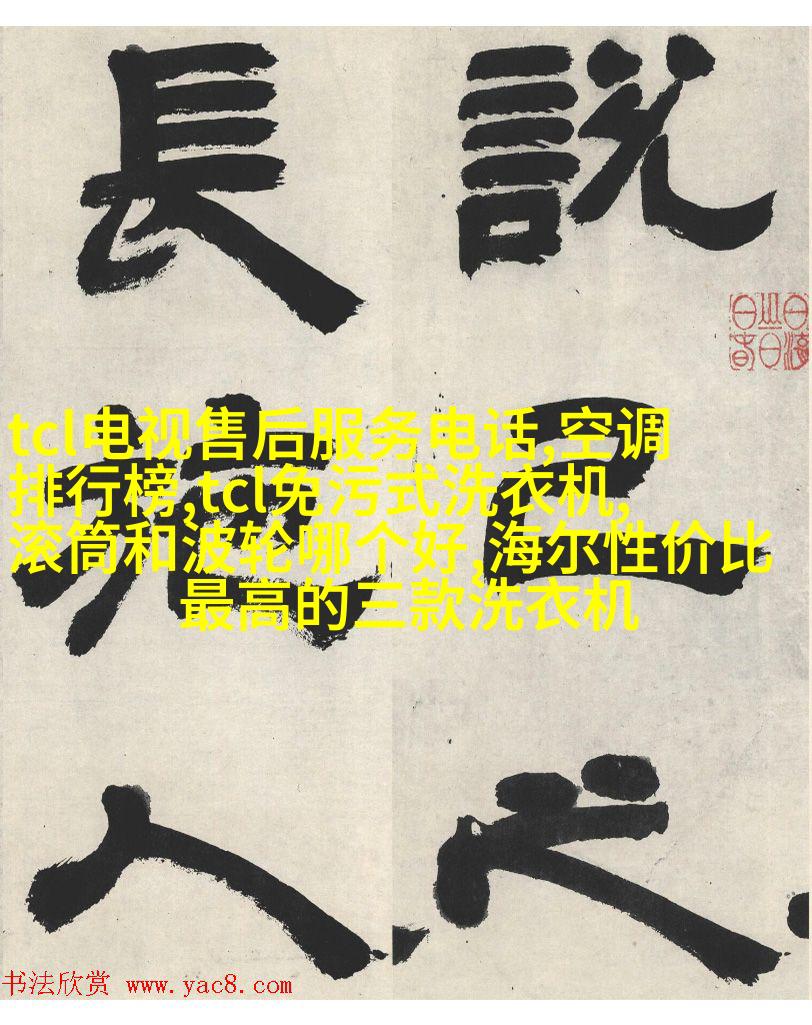 說己之
長施人
tcl电视售后服务电话,空调
排行榜,tcl免污式洗衣机,
滚筒和波轮哪个好,海尔性价比
最高的三款洗衣机
书法欣赏 www.yac8.com